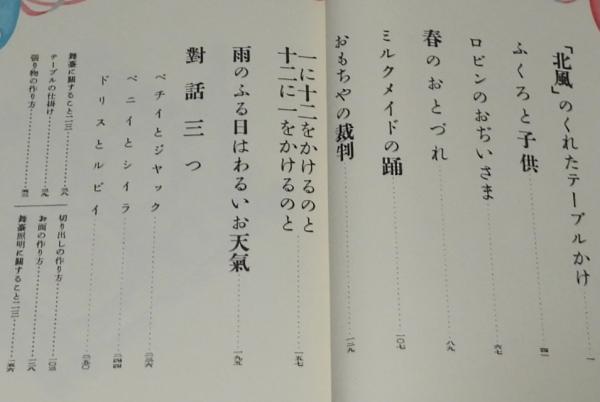 「北風」のくれたテーブルかけ………一
ふくろと子供………四一
ロビンのおぢいさま………六七
春のおとづれ………八九
ミルクメイドの踊………一〇七
おもちやの裁判………一二九
一に十二をかけるのと
十二に一をかけるのと………一五七
雨のふる日はわるいお天氣………一九五
對話三つ
ベチイとジヤック………二三六
ベニイとシイラ………二四四
ドリスとルビイ………二五〇
舞臺に關すること二三………三八
テーブルの仕掛け………三九
張り物の作り方
切り出しの作り方
お面の作り方………一二八
舞臺照明に關すること二三………一五六